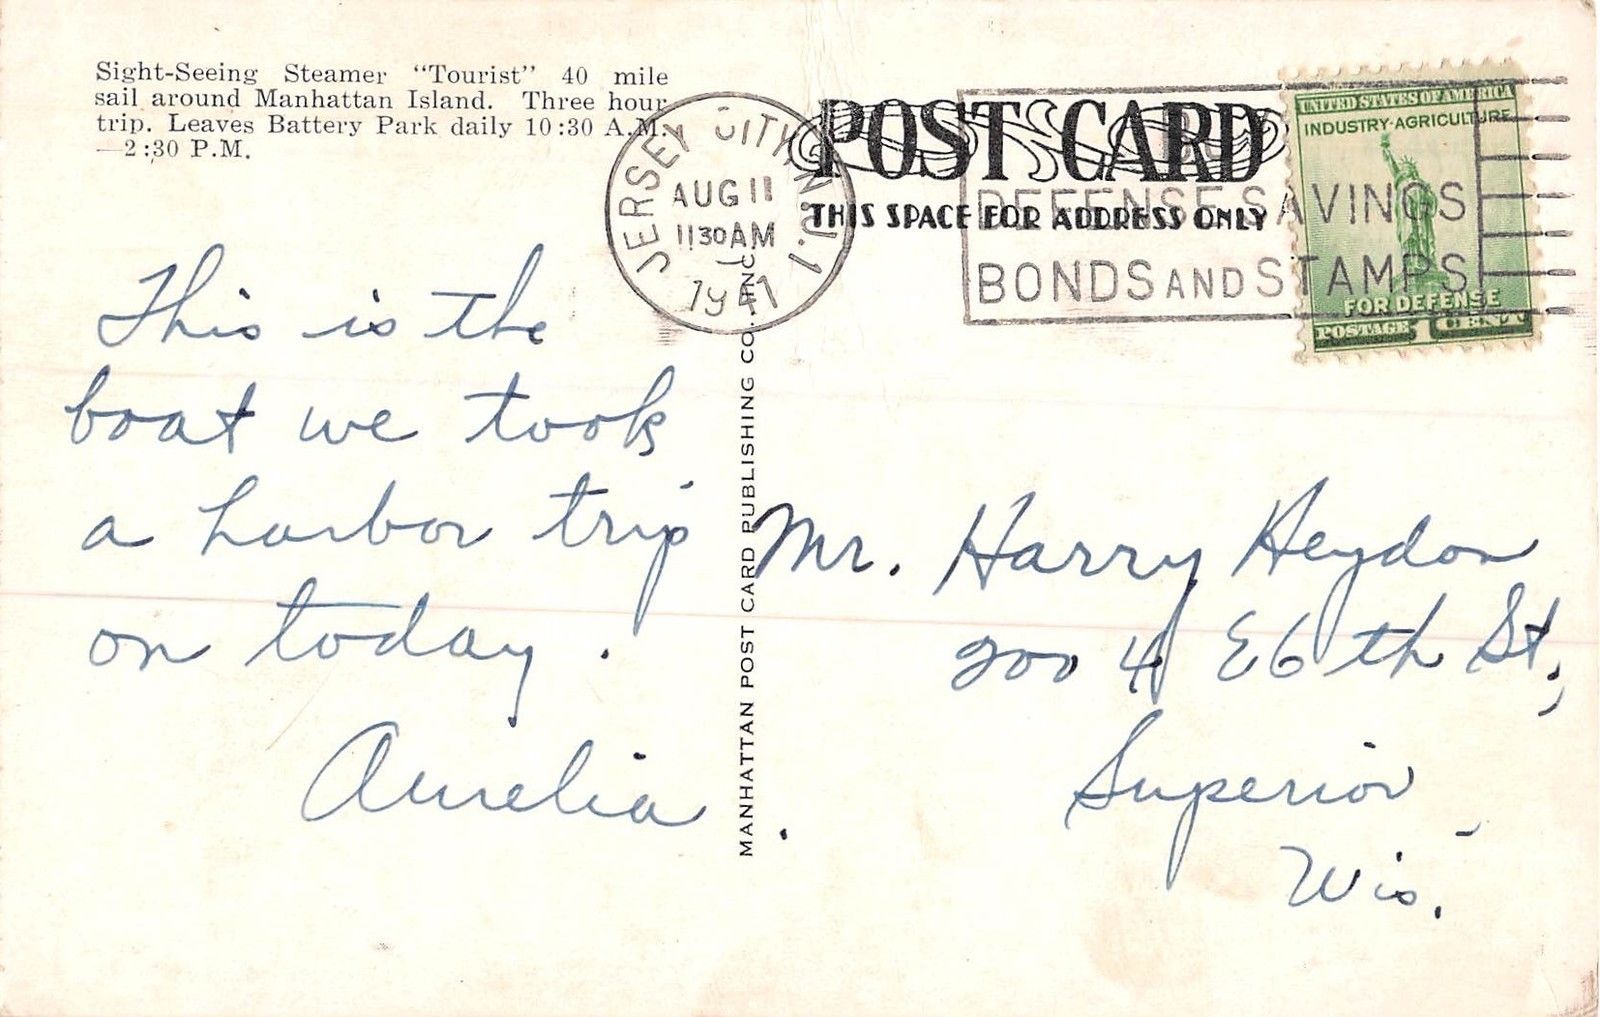 Sight-Seeing Steamer "Tourist" 40 mile
sail around Manhattan Island. Three hour
trip. Leaves Battery Park daily 10:30 A.M.
—2:30 P.M.
JERSEY CITY, N.J. 1
AUG 11
11 30 AM
1941
POST CARD
THIS SPACE FOR ADDRESS ONLY
DEFENSE SAVINGS
BONDS AND STAMPS
UNITED STATES OF AMERICA
INDUSTRY·AGRICULTURE
FOR DEFENSE
POSTAGE 1 CENT
This is the
boat we took
a harbor trip
on today.
Aurelia
MANHATTAN POST CARD PUBLISHING CO., INC.
Mr. Harry Heydon
2004 E 6th St.,
Superior,
Wis.